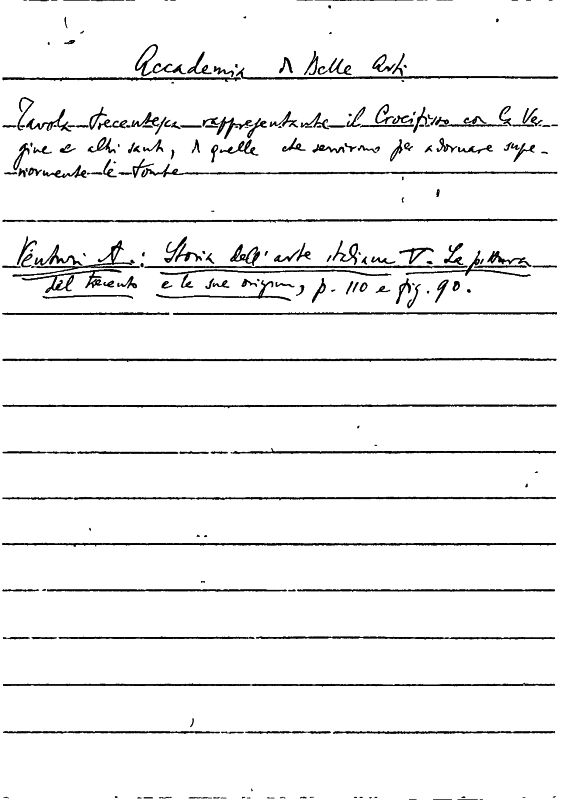 Accademia di Belle Arti
Tavola trecentesca rappresentante il Crocifisso con la Ver-
gine e altri santi, di quelle che servirono per adornare supe-
riormente le tombe
Venturi A.: Storia dell'arte italiana V. La pittura
del trecento e le sue origini, p. 110 e fig. 90.